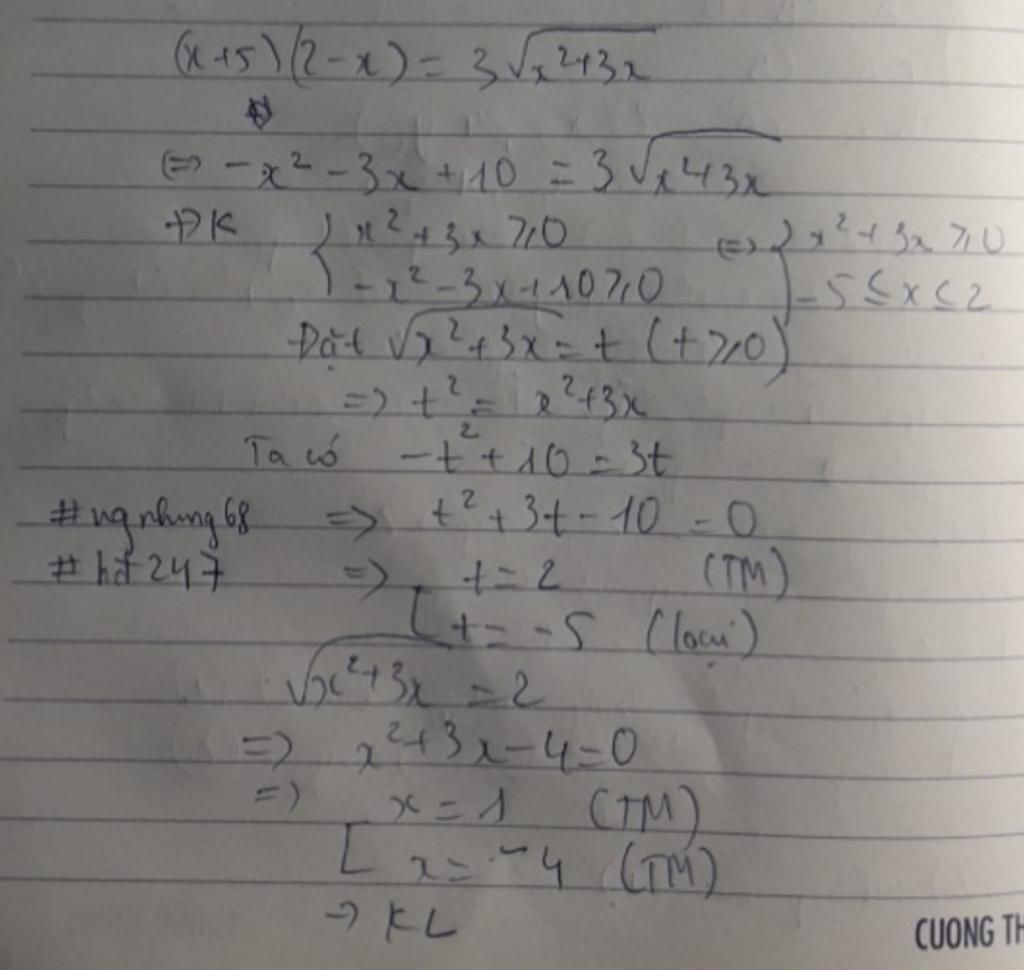 (x+5)(2-x) = 3√x²+3x
(=) -x² - 3x + 10 = 3√x²+3x
ĐK { x² + 3x ≥ 0 (=) { x² + 3x ≥ 0
-x² - 3x + 10 ≥ 0 -5 ≤ x ≤ 2
Đặt √x²+3x = t (t ≥ 0)
=> t² = x²+3x
Ta có -t² + 10 = 3t
#ngnhung68 => t² + 3t - 10 = 0
#hđ247 => [ t = 2 (TM)
t = -5 (loại)
√x²+3x = 2
=> x²+3x-4=0
=> x = 1 (TM)
[ x = -4 (TM)
→ KL
CUONG TH